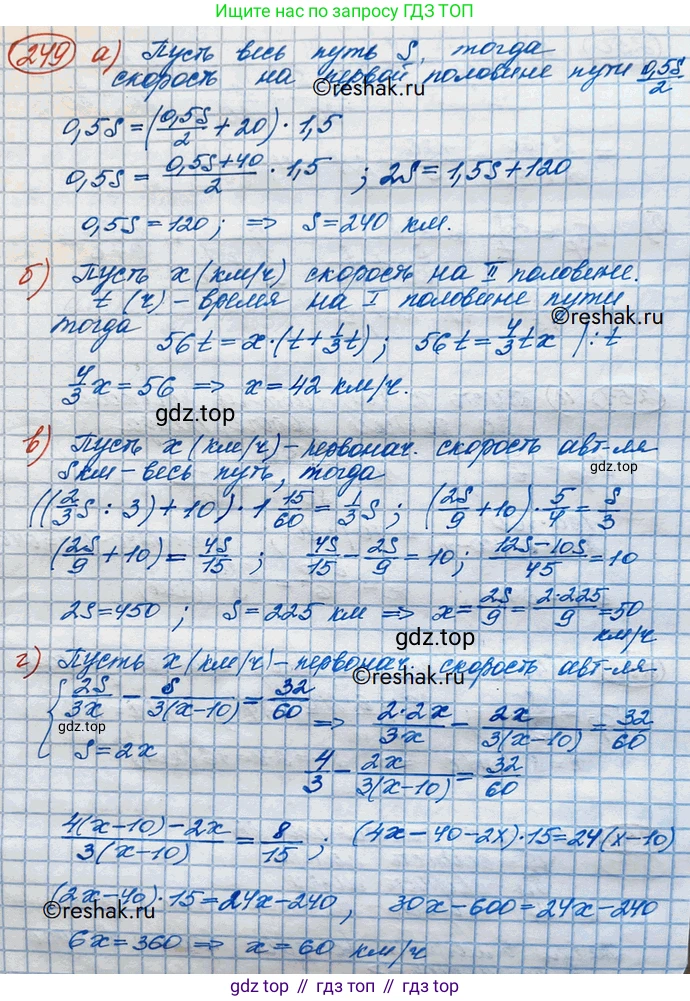 Больше решебников - скачать приложение ГДЗ ТОП
249 а) Пусть весь путь S, тогда
скорость на первой половине пути 0,5S/2
©reshak.ru
0,5S = (0,5S/2 + 20) · 1,5
0,5S = (0,5S+40)/2 · 1,5 ; 2S = 1,5S + 120
0,5S = 120 ; ⇒ S = 240 км.
б) Пусть x (км/ч) скорость на II половине.
t (ч) - время на I половине пути
©reshak.ru
тогда 56t = x · (t + 1/3 t) ; 56t = 4/3 tx / : t
4/3 x = 56 ⇒ x = 42 км/ч.
gdz.top
в) Пусть x (км/ч) - первонач. скорость авт-ля
S км - весь путь, тогда
gdz.top
((2/3 S : 3) + 10) · 1 15/60 = 1/3 S ; (2S/9 + 10) · 5/4 = S/3
(2S/9 + 10) = 4S/15 ; 4S/15 - 2S/9 = 10 ; (12S - 10S)/45 = 10
2S = 450 ; S = 225 км ⇒ x = 2S/9 = (2·225)/9 = 50 км/ч
©reshak.ru
gdz.top
г) Пусть x (км/ч) - первонач. скорость авт-ля
{ 2S/3x - S/3(x-10) = 32/60
S = 2x
⇒ (2·2x)/3x - 2x/3(x-10) = 32/60
gdz.top
4/3 - 2x/3(x-10) = 32/60
(4(x-10) - 2x)/3(x-10) = 8/15 ; (4x - 40 - 2x) · 15 = 24(x-10)
(2x-40) · 15 = 24x - 240 , 30x - 600 = 24x - 240
©reshak.ru
©reshak.ru
6x = 360 ⇒ x = 60 км/ч
gdz.top // гдз топ // gdz.top // гдз топ